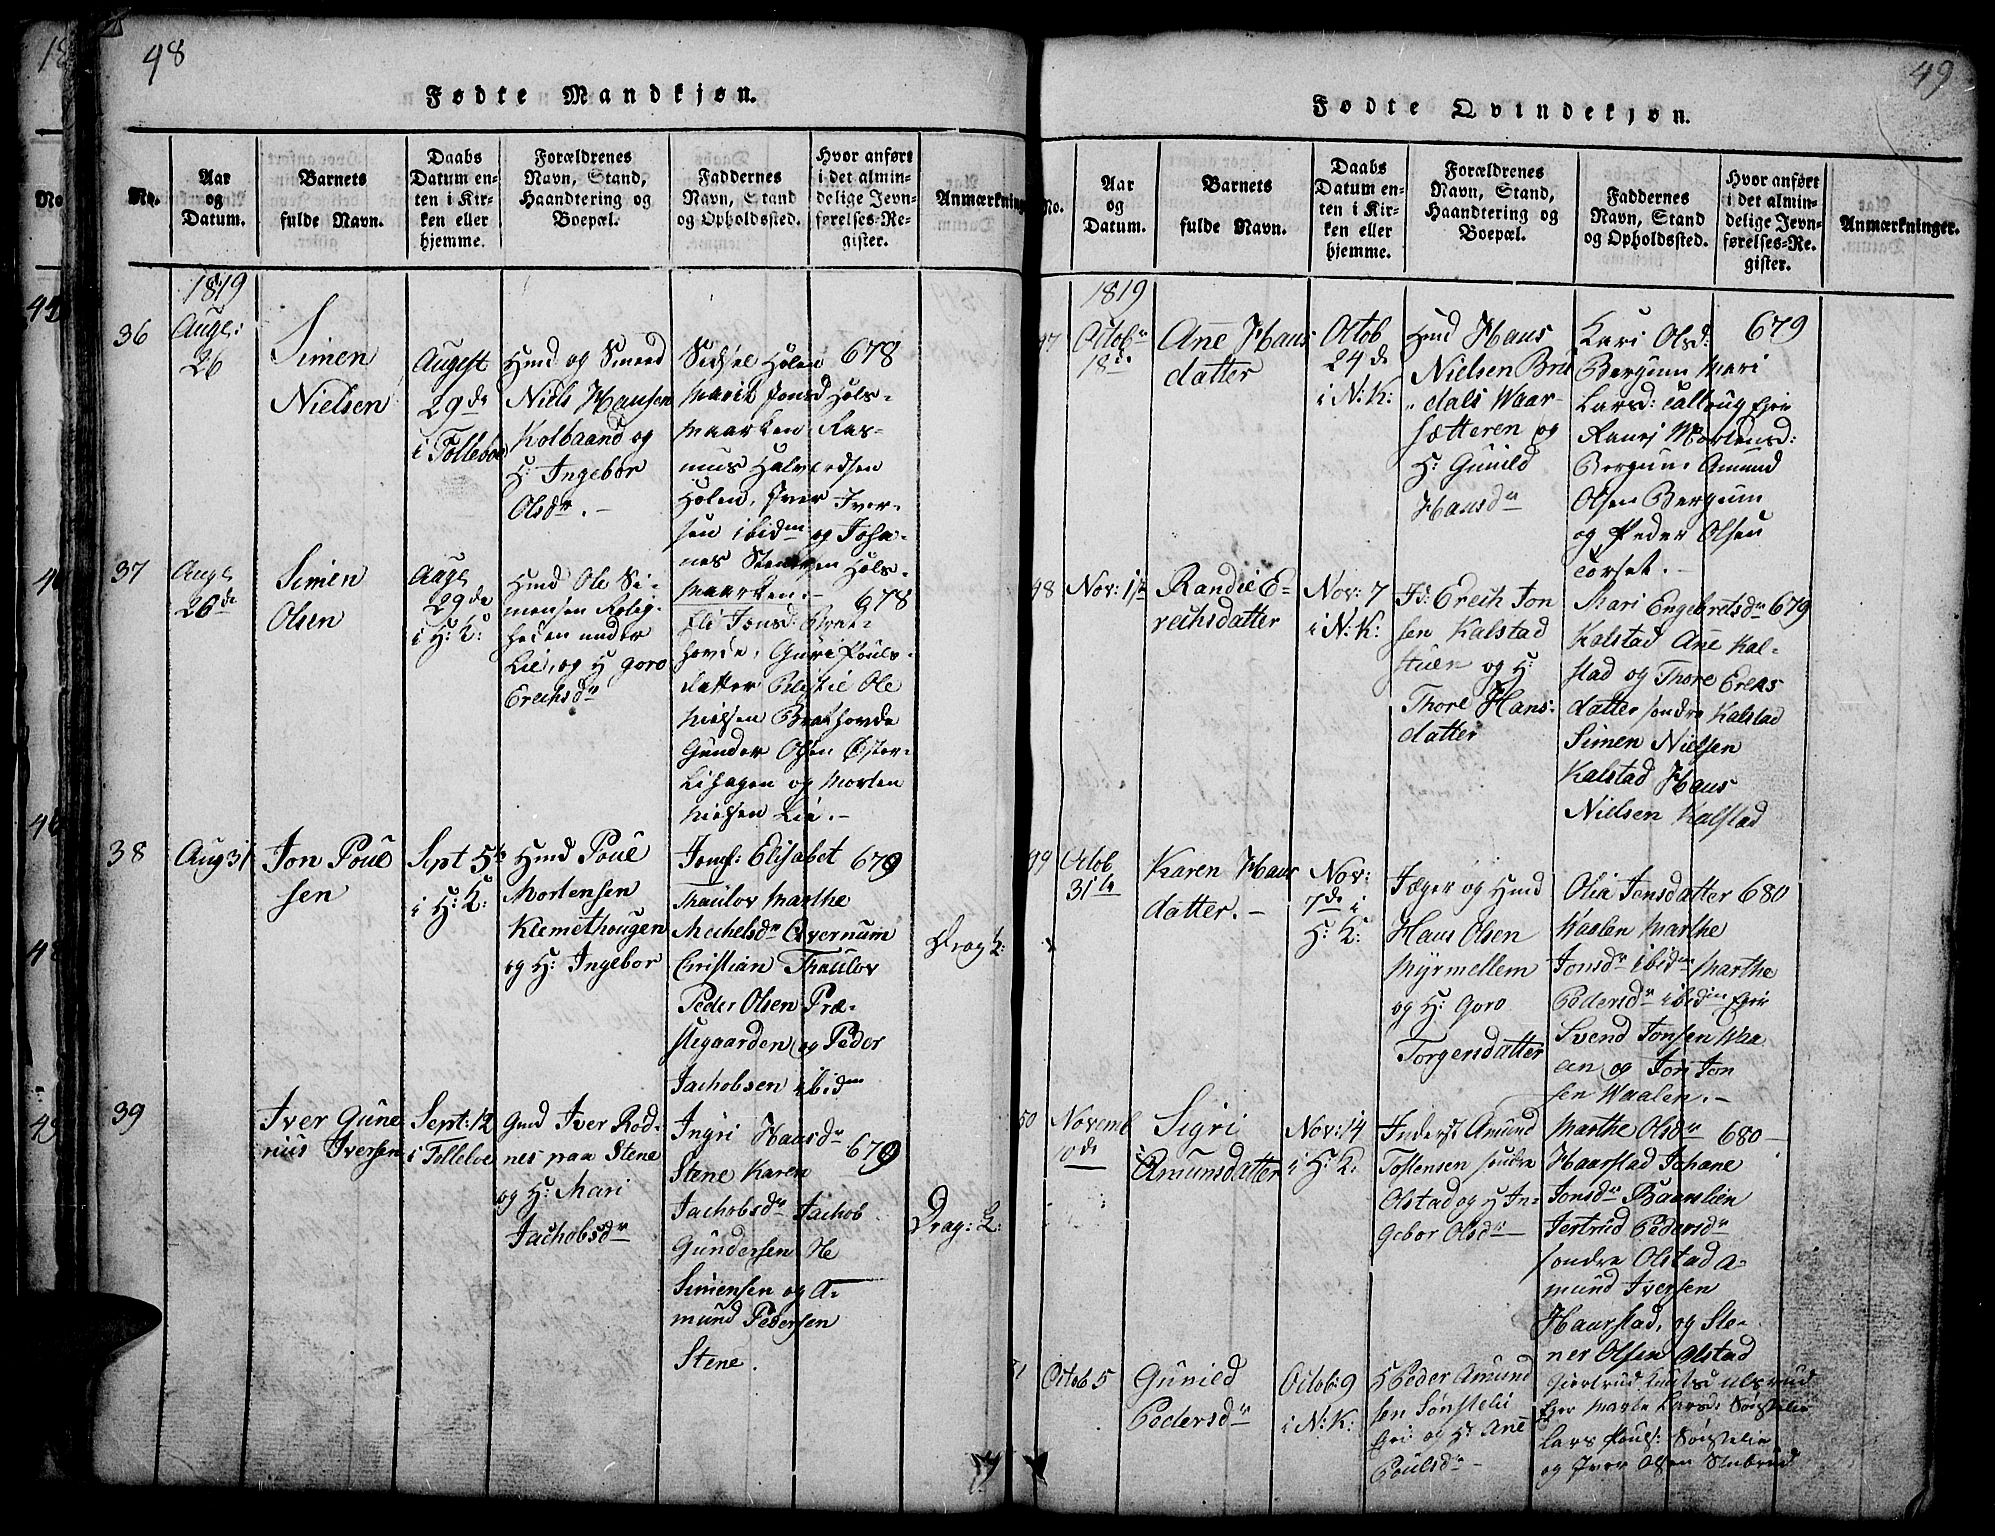 48
Fødte Mandkjøn.
No.
Aar
og
Datum.
Barnets
fulde Navn.
Daabs
Datum en-
ten i Kir-
ken eller
hjemme.
Forældrenes
Navn, Stand,
Haandtering og
Boepæl.
Faddernes
Navn, Stand
og Opholdssted.
Hvor anført
i det almin-
delige Jevn-
førelses-Re-
gister.
Anmærkning
1819
36
Aug:
26
Simen
Nielsen
August
29de
i Folleboe
Hmd og Smed
Niels Hansen
Kolbaand og
H: Ingebor
Olsdr. -
Sidsel Holen
Marit Jonsd Hols-
maarken Ras-
mus Halvordsen
Holen, Iver Iver-
sen ibidm og Joha-
nes Stenersen Hols-
maarken. -
678
37
Aug
26de
Simen
Olsen
Aug
29de
i H: K:
Hmd Ole Si-
mensen Rolig-
heden under
Lie, og H Goro
Erichsdr
Eli Jonsd: Brat-
hovde, Guri Pouls-
datter Ole
Nielsen Brathovde
Gunder Olsen Øster-
Lihagen og Morten
Nielsen Lie. -
678
38
Aug 31
Jon Poul
sen
Sept 5te
i H: K:
Hmd Poul
Mortensen
Klemethougen
og H: Ingebor
Jomf: Elisabet
Thaulov Marthe
Mechelsdr Qvernum
Christian Thaulov
Peder Olsen Præ-
stegaarden og Peder
Jachobsen ibidm
679
Drag K:
39
Iver Gune
rius Iversen
Sept: 12
i Folleboe
Gmd Iver Rod-
nes paa Stene
og H: Mari
Jachobsdr
Ingri Haasdr
Stene Karen
Jachobsdr Jachob
Gundersen Ole
Simensen og A-
mund Pedersen
Stene.
679
Drag: K:
49
Fødte Qvindekjøn.
No.
Aar
og
Datum.
Barnets
fulde Navn.
Daabs
Datum en-
ten i Kir-
ken eller
hjemme.
Forældrenes
Navn, Stand,
Haandtering og
Boepæl.
Faddernes
Navn, Stand
og Opholdssted.
Hvor anført
i det almin-
delige Jevn-
førelses-Re-
gister.
Anmærkninger.
1819
47
Octobr
18de
Ane Hans
datter
Octob
24de
i N: K:
Hmd Hans
Nielsen Brü
dals Waar-
sætteren og
H: Gunild
Hansdr
Kari Olsd:
Bergum Mari
Larsd:
Morten­sd:
Bergum Amund
Olsen Bergum
og Peder Olsen
Torset. -
679
48
Nov: 1te
Randie E-
rechsdatter
Nov: 7
i N: K:
Id: Erech Jon
sen Kalstad
stuen og H:
Thore Hans-
datter
Mari Engebretsdr
Kalstad Ane Kal-
stad og Thore Ereks
datter søndre Kalstad
Simen Nielsen
Kalstad Hans
Nielsen Kalstad
679
49
Octob
31te
Karen Hans
datter. -
Nov:
7de i
H: K:
Jæger og Hmd
Hans Olsen
Myrmellem
og H: Goro
Torgersdatter
Olia Jensdatter
Waalen Marthe
Jonsdr ibidm Marthe
Pedersdr ibidm
Svend Jonsen Waa
len og Jon Jon
sen Waalen. -
680
50
Novemb
10de
Sigri
Amunsdatter
Nov: 14
i H: K:
Inderst Amund
Tostensen søndre
Olstad og H In-
gebor Olsdr
Marthe Olsdr
Haarstad Johane
Jonsdr Baarslien
Jertrud Pedersdr
søndre Olstad A-
mund Iversen
Haarstad, og Ste-
ner Olsen Olstad
680
51
Octob 5
Gunild
Pedersdr
Octob: 9
i N: K:
H Peder Amund
sen Sønstelie
og H: Ane
Poulsdr
Giertrud Knutsd Ulsrud
Marte Larsd: Sønstelie
Lars Pouls: Sønstelie
og Iver Olsen Stubrud